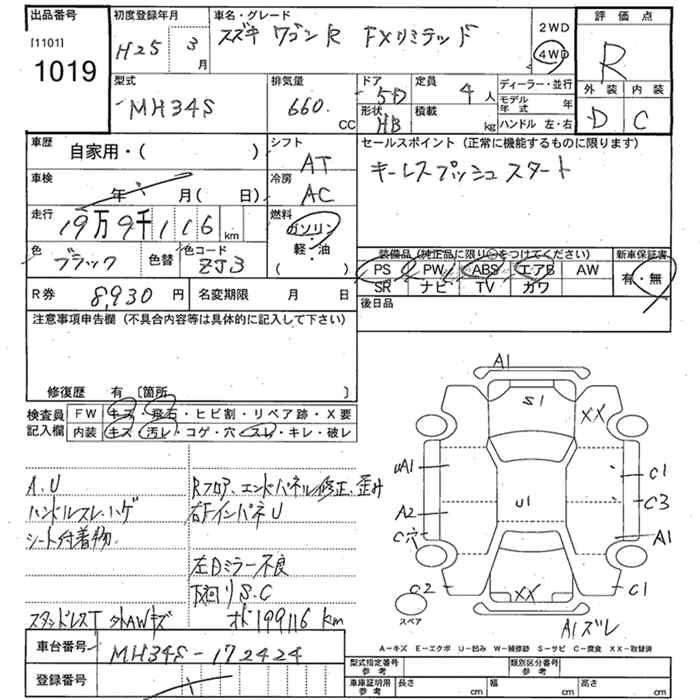 出品番号
[1101]
1019
初度登録年月
H25 3 月
車名・グレード
スズキ ワゴンR FXリミテッド
2WD
4WD
評価点
R
外装 内装
D C
型式
MH34S
排気量
660 CC
ドア
5D
形状
HB
定員
4 人
積載
kg
ディーラー・並行
モデル年式 年
ハンドル 左・右
車歴
自家用・( )
シフト
AT
セールスポイント (正常に機能するものに限ります)
キーレスプッシュスタート
車検
年 月 ( 日)
冷房
AC
走行
19万9千116 km
燃料
ガソリン
軽・油
( )
色
ブラック
色替
色コード
ZJ3
装備品 (純正品に限り○をつけてください)
PS PW ABS エアB AW
SR ナビ TV カワ
新車保証書
有・無
R券 8,930 円
名変期限 月 日
後日品
注意事項申告欄 (不具合内容等は具体的に記入して下さい)
修復歴 有 〔箇所 〕
検査員記入欄
FW キズ・飛石・ヒビ割・リペア跡・X要
内装 キズ・汚レ・コゲ・穴・スレ・キレ・破レ
A.U
ハンドルスレ、ハゲ
シート付着物
スタッドレスT 外AWキズ
Rフロア、エンドパネル修正、歪み
右FインパネU
左Dミラー不良
下廻りS.C
オド199116km
A1
S1
XX
uA1
C1
U1
A2
C3
C穴
A1
C2
XX
C1
スペア
A1ズレ
A-キズ E-エクボ U-凹み W-補修跡 S-サビ C-腐食 XX-取替済
車台番号
MH34S-172424
登録番号
型式指定番号
参考
類別区分番号
参考
車庫証明用
参考
長さ cm
幅 cm
高さ cm